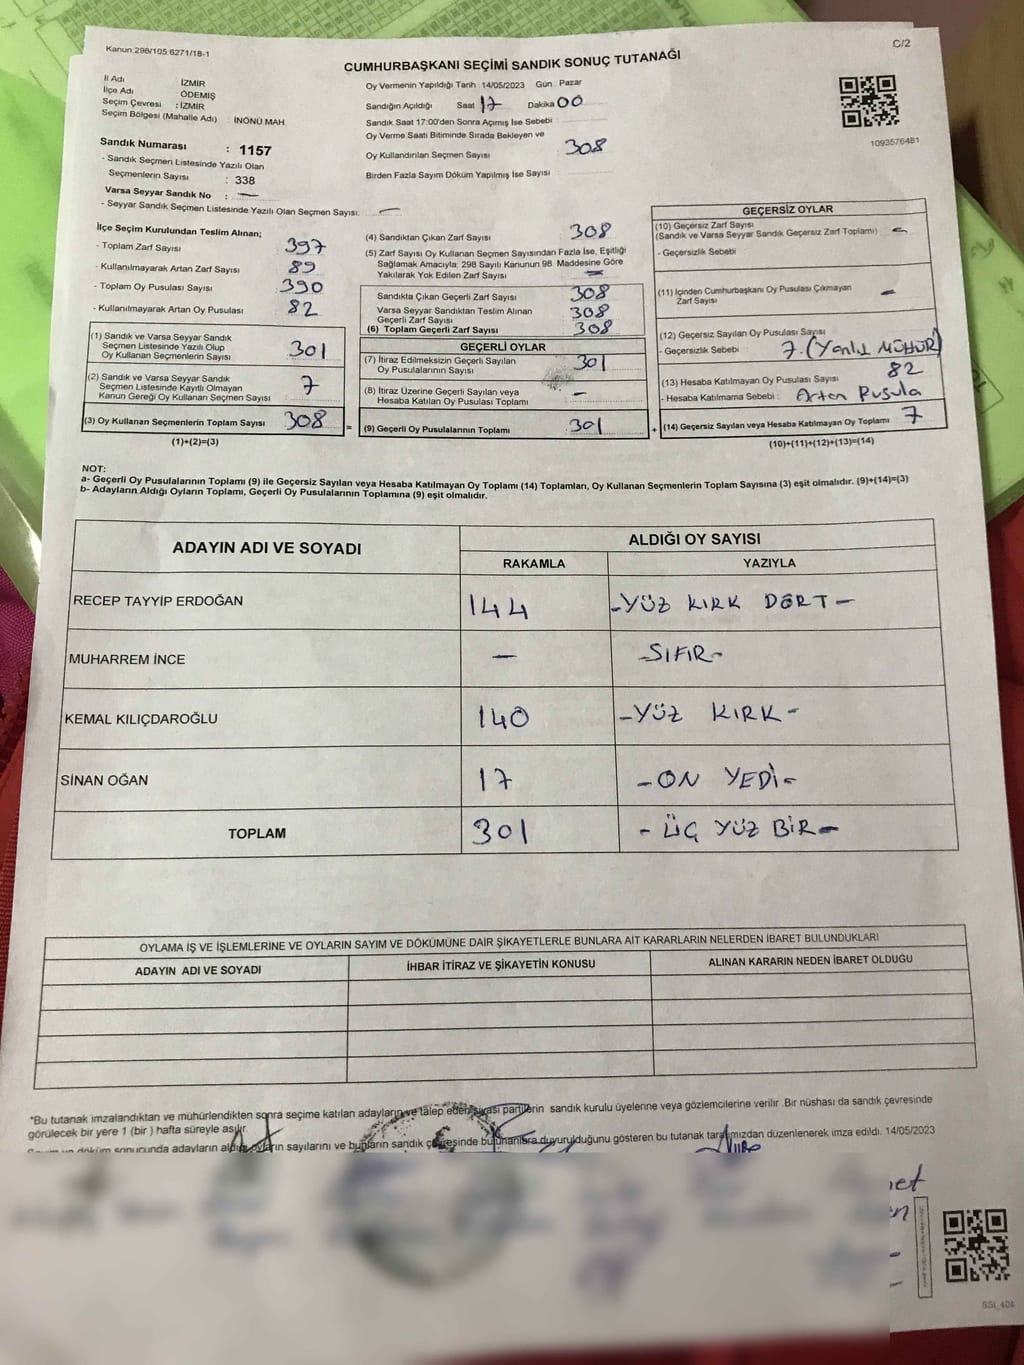 Kanun 298/105 6271/18-1
C/2
CUMHURBAŞKANI SEÇİMİ SANDIK SONUÇ TUTANAĞI
İl Adı : İZMİR
İlçe Adı : ÖDEMİŞ
Seçim Çevresi : İZMİR
Seçim Bölgesi (Mahalle Adı) : İNÖNÜ MAH.
Sandık Numarası : 1157
- Sandık Seçmen Listesinde Yazılı Olan
Seçmenlerin Sayısı : 338
Varsa Seyyar Sandık No : —
- Seyyar Sandık Seçmen Listesinde Yazılı Olan Seçmen Sayısı: —
Oy Vermenin Yapıldığı Tarih : 14/05/2023 Gün : Pazar
Sandığın Açıldığı Saat 17 Dakika 00
Sandık Saat 17:00'den Sonra Açımış İse Sebebi :
Oy Verme Saati Bitiminde Sırada Bekleyen ve
Oy Kullandırılan Seçmen Sayısı 308
Birden Fazla Sayım Döküm Yapılmış İse Sayısı
1093576481
İlçe Seçim Kurulundan Teslim Alınan;
- Toplam Zarf Sayısı 397
- Kullanılmayarak Artan Zarf Sayısı 89
- Toplam Oy Pusulası Sayısı 390
- Kullanılmayarak Artan Oy Pusulası 82
(1) Sandık ve Varsa Seyyar Sandık
Seçmen Listesinde Yazılı Olup
Oy Kullanan Seçmenlerin Sayısı 301
(2) Sandık ve Varsa Seyyar Sandık
Seçmen Listesinde Kayıtlı Olmayan
Kanun Gereği Oy Kullanan Seçmen Sayısı 7
(3) Oy Kullanan Seçmenlerin Toplam Sayısı 308 =
(1)+(2)=(3)
(4) Sandıktan Çıkan Zarf Sayısı 308
(5) Zarf Sayısı Oy Kullanan Seçmen Sayısından Fazla İse, Eşitliği
Sağlamak Amacıyla; 298 Sayılı Kanunun 98. Maddesine Göre
Yakılarak Yok Edilen Zarf Sayısı —
Sandıkta Çıkan Geçerli Zarf Sayısı 308
Varsa Seyyar Sandıktan Teslim Alınan
Geçerli Zarf Sayısı 308
(6) Toplam Geçerli Zarf Sayısı 308
GEÇERLİ OYLAR
(7) İtiraz Edilmeksizin Geçerli Sayılan
Oy Pusulalarının Sayısı 301
(8) İtiraz Üzerine Geçerli Sayılan veya
Hesaba Katılan Oy Pusulası Toplamı —
(9) Geçerli Oy Pusulalarının Toplamı 301 +
GEÇERSİZ OYLAR
(10) Geçersiz Zarf Sayısı
(Sandık ve Varsa Seyyar Sandık Geçersiz Zarf Toplamı) —
- Geçersizlik Sebebi
(11) İçinden Cumhurbaşkanı Oy Pusulası Çıkmayan
Zarf Sayısı —
(12) Geçersiz Sayılan Oy Pusulası Sayısı
- Geçersizlik Sebebi 7. (Yanlış MÜHÜR)
(13) Hesaba Katılmayan Oy Pusulası Sayısı 82
- Hesaba Katılmama Sebebi : Artan Pusula
(14) Geçersiz Sayılan veya Hesaba Katılmayan Oy Toplamı 7
(10)+(11)+(12)+(13)=(14)
NOT:
a- Geçerli Oy Pusulalarının Toplamı (9) ile Geçersiz Sayılan veya Hesaba Katılmayan Oy Toplamı (14) Toplamları, Oy Kullanan Seçmenlerin Toplam Sayısına (3) eşit olmalıdır. (9)+(14)=(3)
b- Adayların Aldığı Oyların Toplamı, Geçerli Oy Pusulalarının Toplamına (9) eşit olmalıdır.
ADAYIN ADI VE SOYADI
ALDIĞI OY SAYISI
RAKAMLA YAZIYLA
RECEP TAYYİP ERDOĞAN 144 -YÜZ KIRK DÖRT-
MUHARREM İNCE — -SIFIR-
KEMAL KILIÇDAROĞLU 140 -YÜZ KIRK-
SİNAN OĞAN 17 -ON YEDİ-
TOPLAM 301 - ÜÇ YÜZ BİR-
OYLAMA İŞ VE İŞLEMLERİNE VE OYLARIN SAYIM VE DÖKÜMÜNE DAİR ŞİKAYETLERLE BUNLARA AİT KARARLARIN NELERDEN İBARET BULUNDUKLARI
ADAYIN ADI VE SOYADI İHBAR İTİRAZ VE ŞİKAYETİN KONUSU ALINAN KARARIN NEDEN İBARET OLDUĞU
*Bu tutanak imzalandıktan ve mühürlendikten sonra seçime katılan adayların ve talep eden siyasi partilerin sandık kurulu üyelerine veya gözlemcilerine verilir .Bir nüshası da sandık çevresinde
görülecek bir yere 1 (bir ) hafta süreyle asılır.
Sayım ve döküm sonucunda adayların aldığı oyların sayılarını ve bunların sandık çevresinde bulunanlara duyurulduğunu gösteren bu tutanak tarafımızdan düzenlenerek imza edildi. 14/05/2023
SSI_404